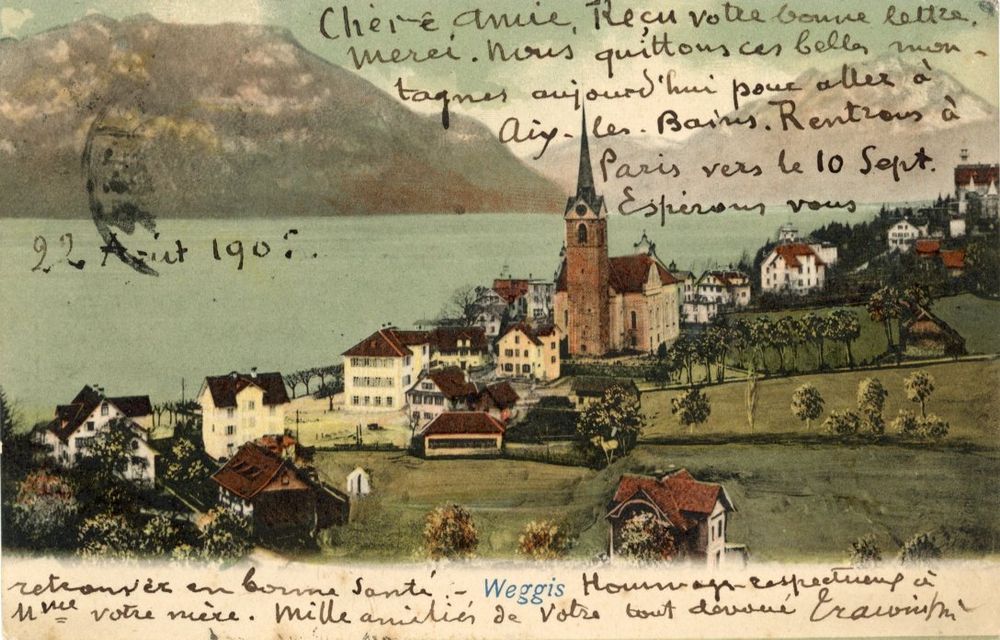 Chère amie, Reçu votre bonne lettre,
merci. Nous quittons ces belles mon-
tagnes aujourd'hui pour aller à
Aix-les-Bains. Rentrons à
Paris vers le 10 Sept.
Espérons vous
22 Août 1905.
retrouver en bonne Santé. -
Weggis
Hommage respectueux à
Mme votre mère. Mille amitiés de Votre tout dévoué